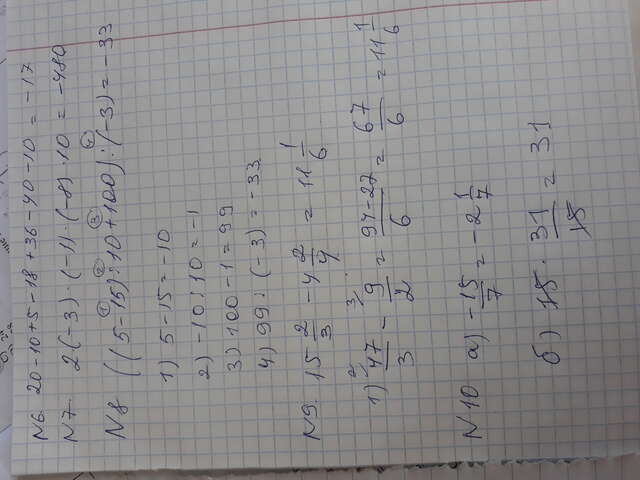 N6. 20-10+5-18+36-40-10 = -17
N7. 2·(-3)·(-1)·(-8)·10 = -480
N8 ((5-15):10+100):(-3) = -33
1) 5-15=-10
2) -10:10=-1
3) 100-1=99
4) 99:(-3)=-33
N9. 15 2/3 - 4 2/4 = 11 1/6
1) 47/3 - 9/2 = 94-27/6 = 67/6 = 11 1/6
N10 а) -15/7 = -2 1/7
б) 15 · 31/15 = 31